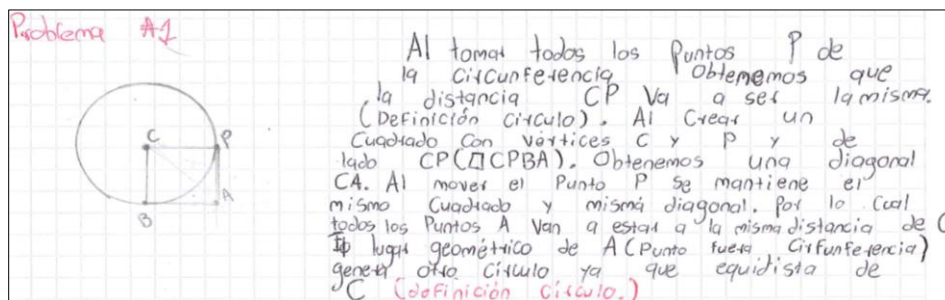 Problema #1
Al tomar todos los puntos P de
la circunferencia obtenemos que
la distancia CP va a ser la misma.
(Definición circulo). Al crear un
cuadrado con vértices C y P y de
lado CP (□CPBA). Obtenemos una diagonal
CA. Al mover el punto P se mantiene el
mismo cuadrado y misma diagonal. Por lo cual
todos los puntos A van a estar a la misma distancia de C
lugar geométrico de A (Punto fuera Cirfunferencia)
genera otro circulo ya que equidista de
C (definición circulo.)
C
P
B
A